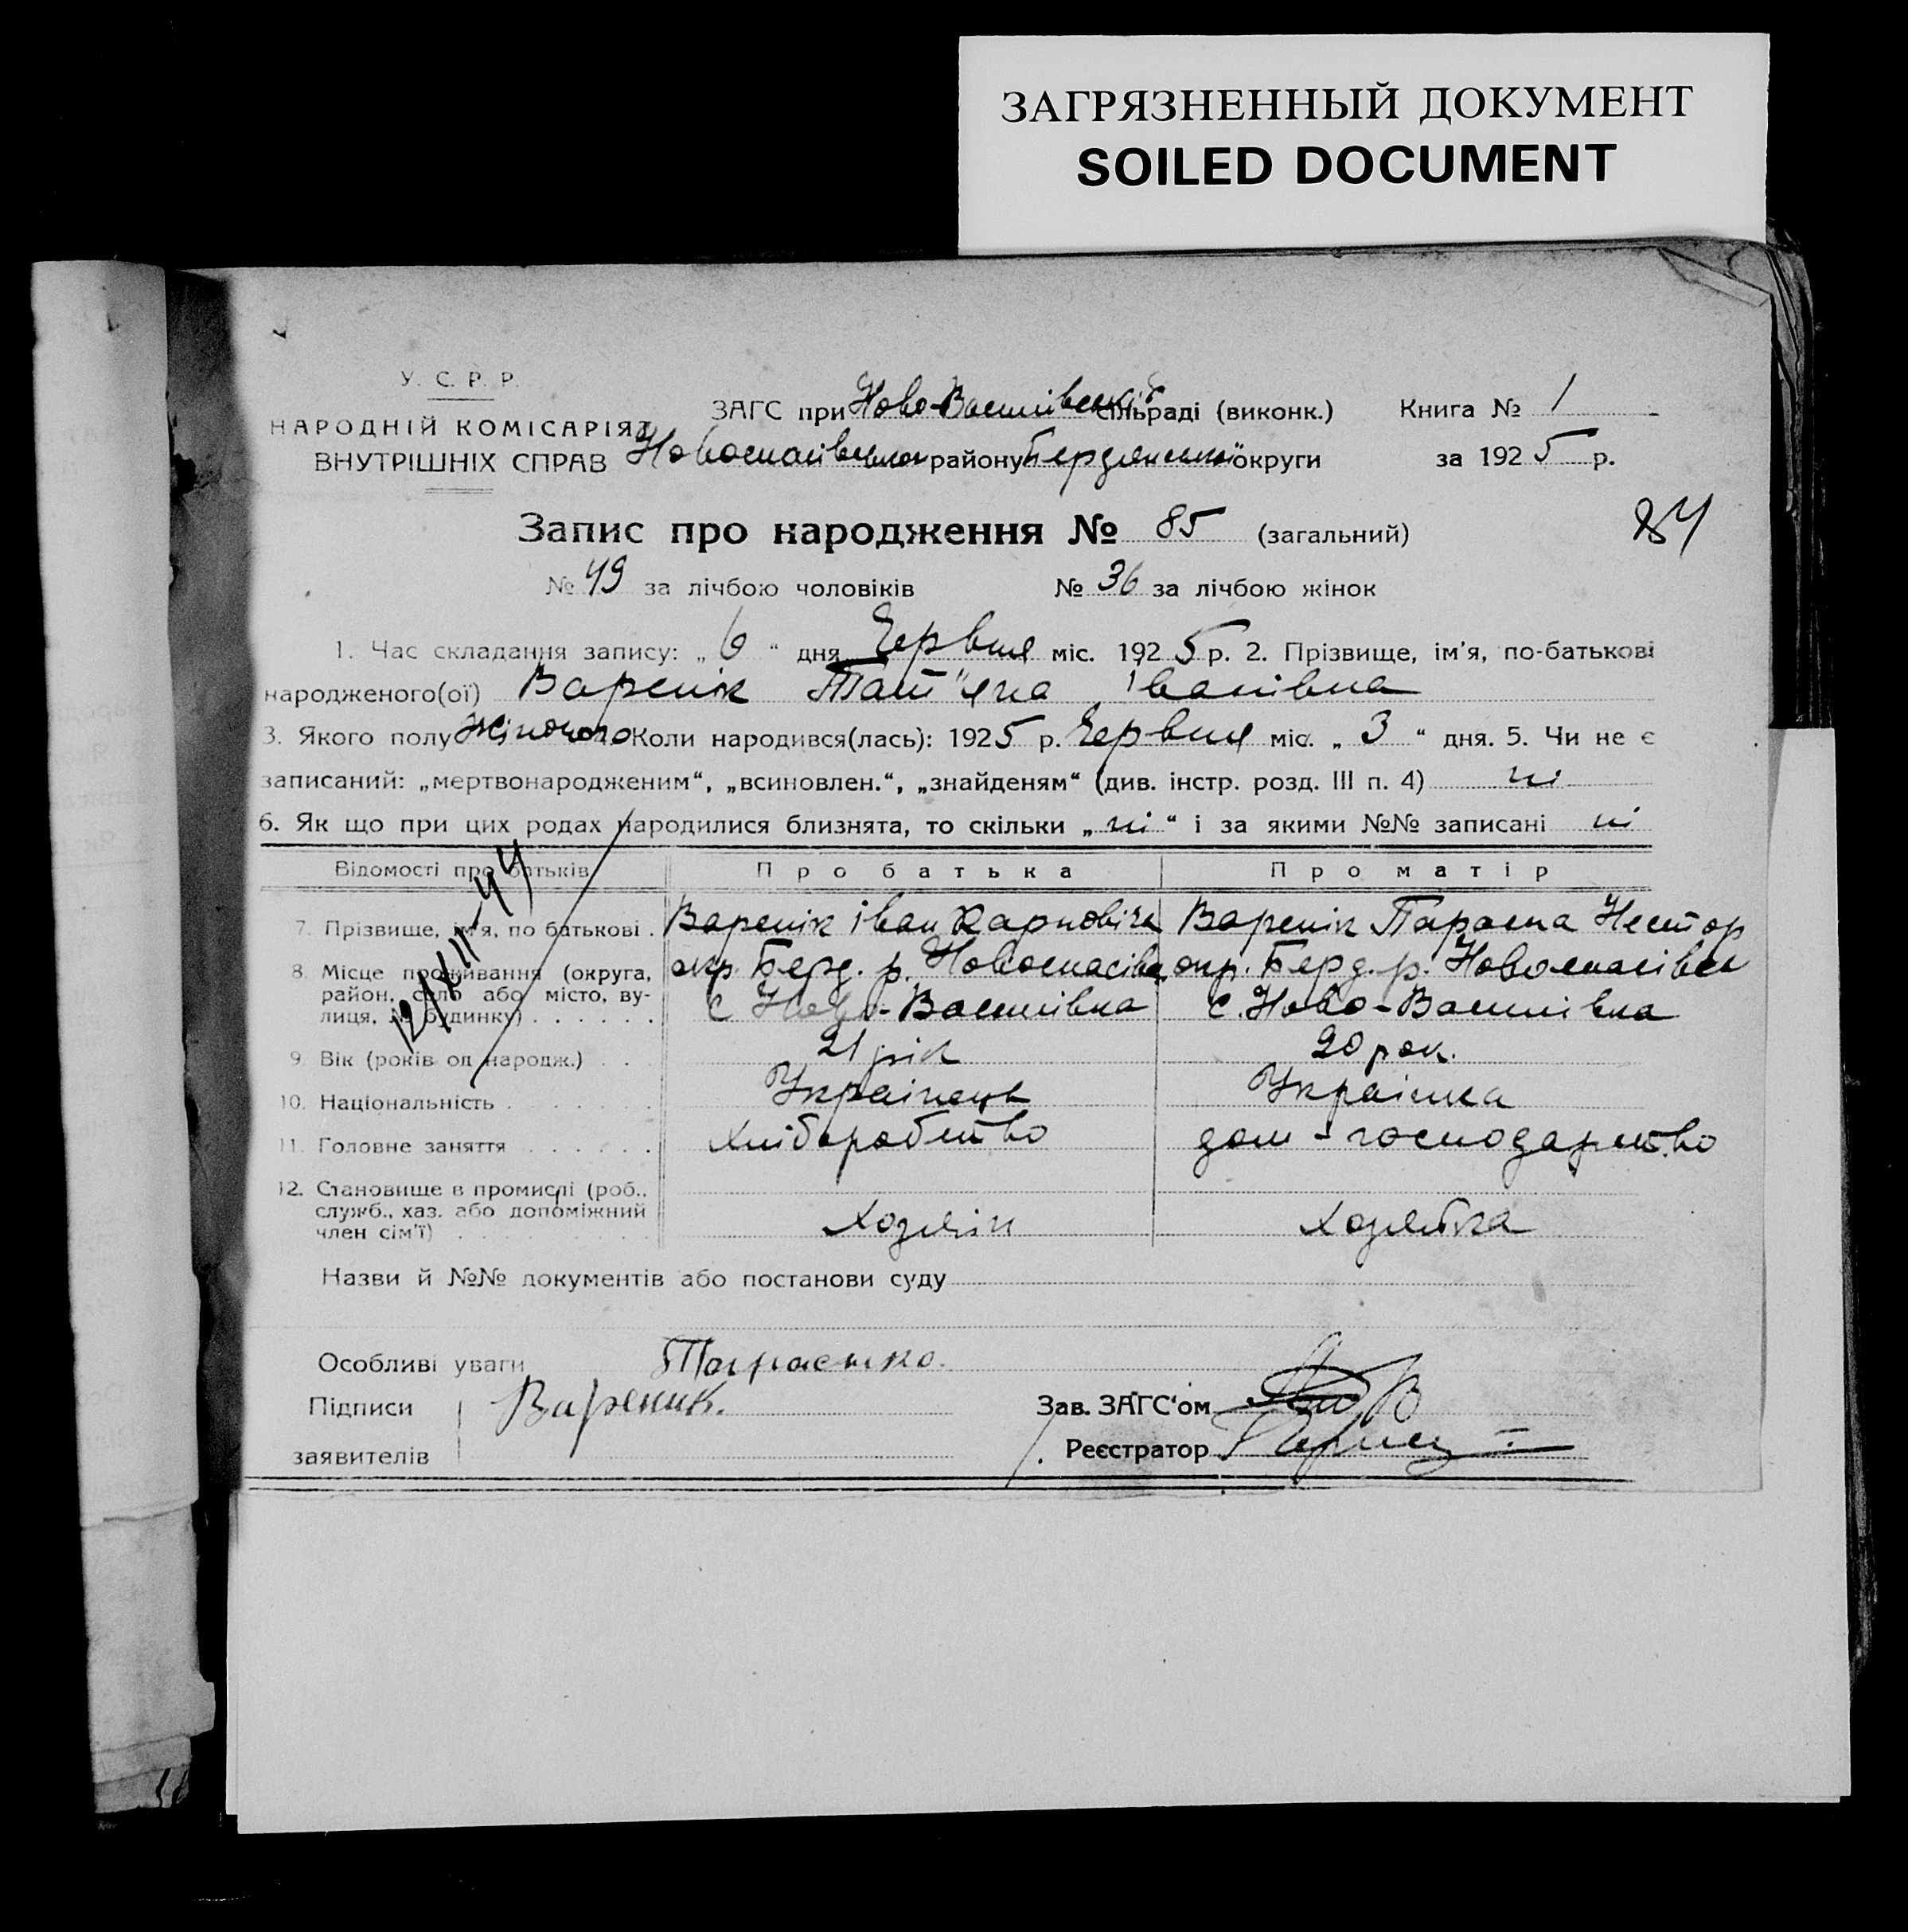 ЗАГРЯЗНЕННЫЙ ДОКУМЕНТ
SOILED DOCUMENT
У. С. Р. Р.
НАРОДНІЙ КОМІСАРІЯТ
ВНУТРІШНІХ СПРАВ
ЗАГС при Ново-Василівській сільраді (виконк.) Книга № 1
Новоспасівського району Бердянської округи за 1925 р.
Запис про народження № 85 (загальний)
84
№ 49 за лічбою чоловіків № 36 за лічбою жінок
1. Час складання запису: „ 6 “ дня Червня міс. 1925 р. 2. Прізвище, ім'я, по-батькові
народженого(ої) Варенік Тат"яна Іванівна
3. Якого полу Жіночого Коли народився(лась): 1925 р. Червня міс. „ 3 “ дня. 5. Чи не є
записаний: „мертвонародженим“, „всиновлен.“, „знайденям“ (див. інстр. розд. III п. 4) ні
6. Як що при цих родах народилися близнята, то скільки „ ні “ і за якими №№ записані ні
Відомості про батьків Про батька Про матір
7. Прізвище, ім'я, по батькові . Варенік Іван Карповіч Варенік Параска Нестор
8. Місце проживання (округа, район, село або місто, вулиця, № будинку) . . . . . .
окр. Берд. р. Новоспасівк окр. Берд. р. Новоспасівск
с Ново-Василівка с. Ново-Василівка
9. Вік (років од народж.) . . . 21 рік 20 рок.
10. Національність . . . . . . . Українець Українка
11. Головне заняття . . . . . . Хліборобство дом-господарство
12. Становище в промислі (роб., служб., хаз. або допоміжний член сім'ї) . . . . . . . .
Хозяін Хозяйка
12/XII 44
Назви й №№ документів або постанови суду
Особливі уваги Тарасенко.
Підписи Вареник. Зав. ЗАГС'ом
заявителів Реєстратор